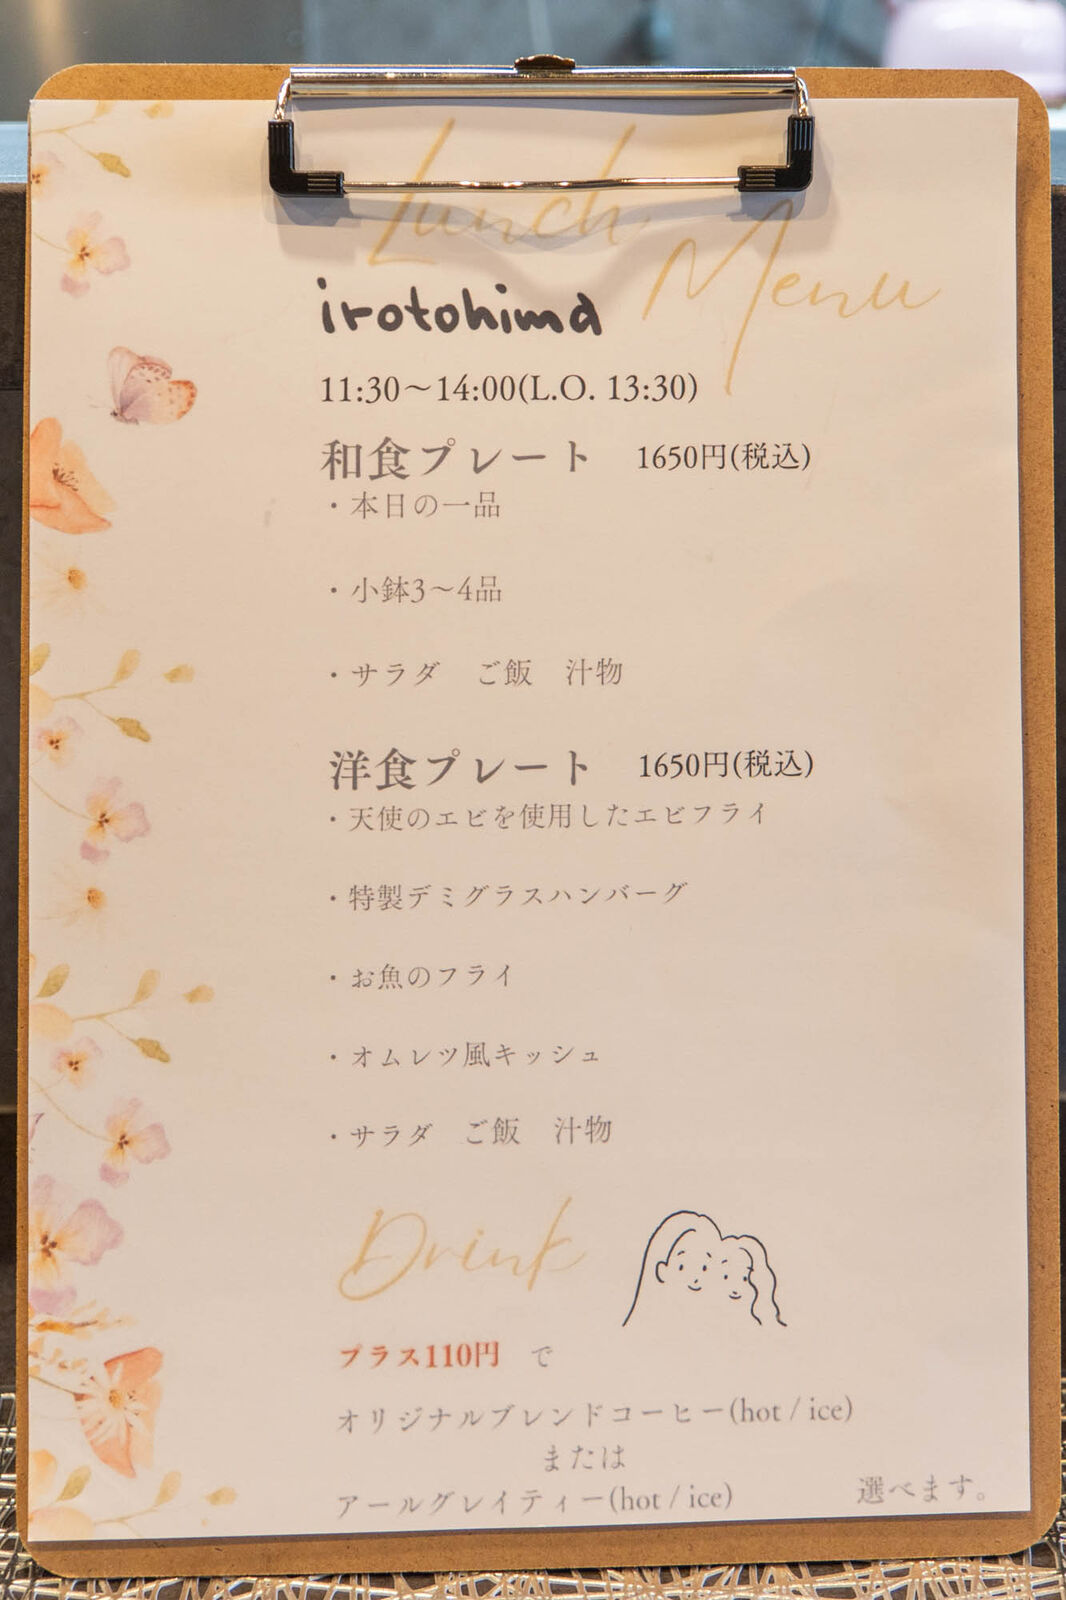 Lunch
Menu
irotohima
11:30～14:00(L.O. 13:30)
和食プレート 1650円(税込)
・本日の一品
・小鉢3～4品
・サラダ ご飯 汁物
洋食プレート 1650円(税込)
・天使のエビを使用したエビフライ
・特製デミグラスハンバーグ
・お魚のフライ
・オムレツ風キッシュ
・サラダ ご飯 汁物
Drink
プラス110円 で
オリジナルブレンドコーヒー(hot / ice)
または
アールグレイティー(hot / ice) 選べます。